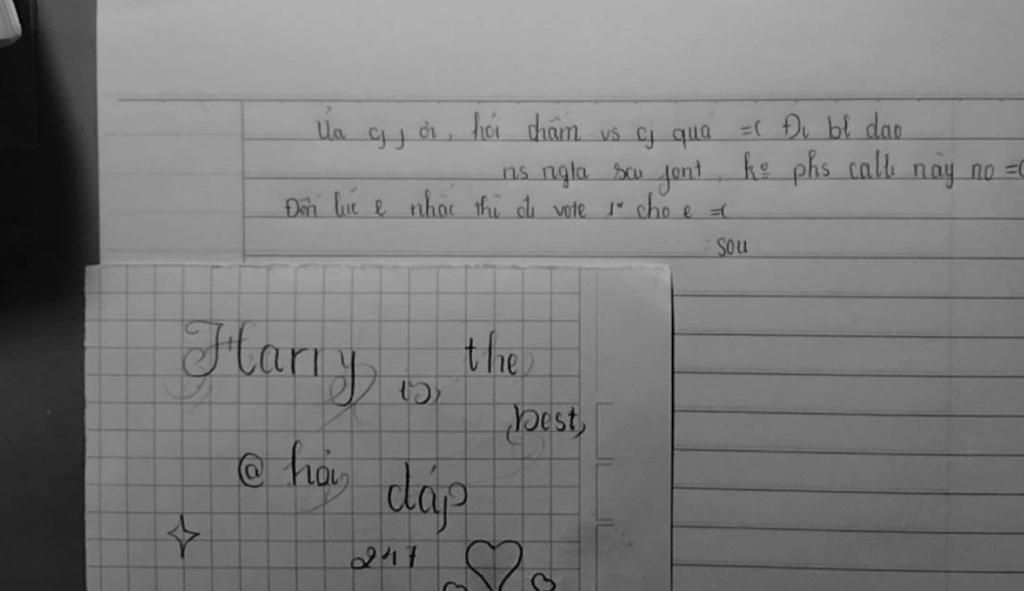 Ủa cj j ơi, hỏi chấm vs cj quá =( Đi bl dạo
ns ngta sau font, kº phs call này nọ =(
Đến lúc e nhắc thì đi vote 1* cho e =(
: sou
Harry is the
best,
@ hỏi đáp
247